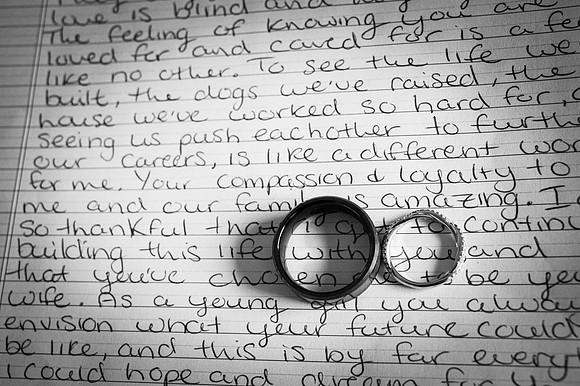 love is blind and
The feeling of knowing you are
loved for and cared for is a
like no other. To see the life we
built, the dogs we've raised, the
house we've worked so hard for,
seeing us push eachother to
our careers, is like a different
for me. Your compassion & loyalty to
me and our family is amazing. I
so thankful that I get to
building this life with you and
that you've chosen me to be
wife. As a young girl you
envision what your future could
be like, and this is by far
I could hope and dream for